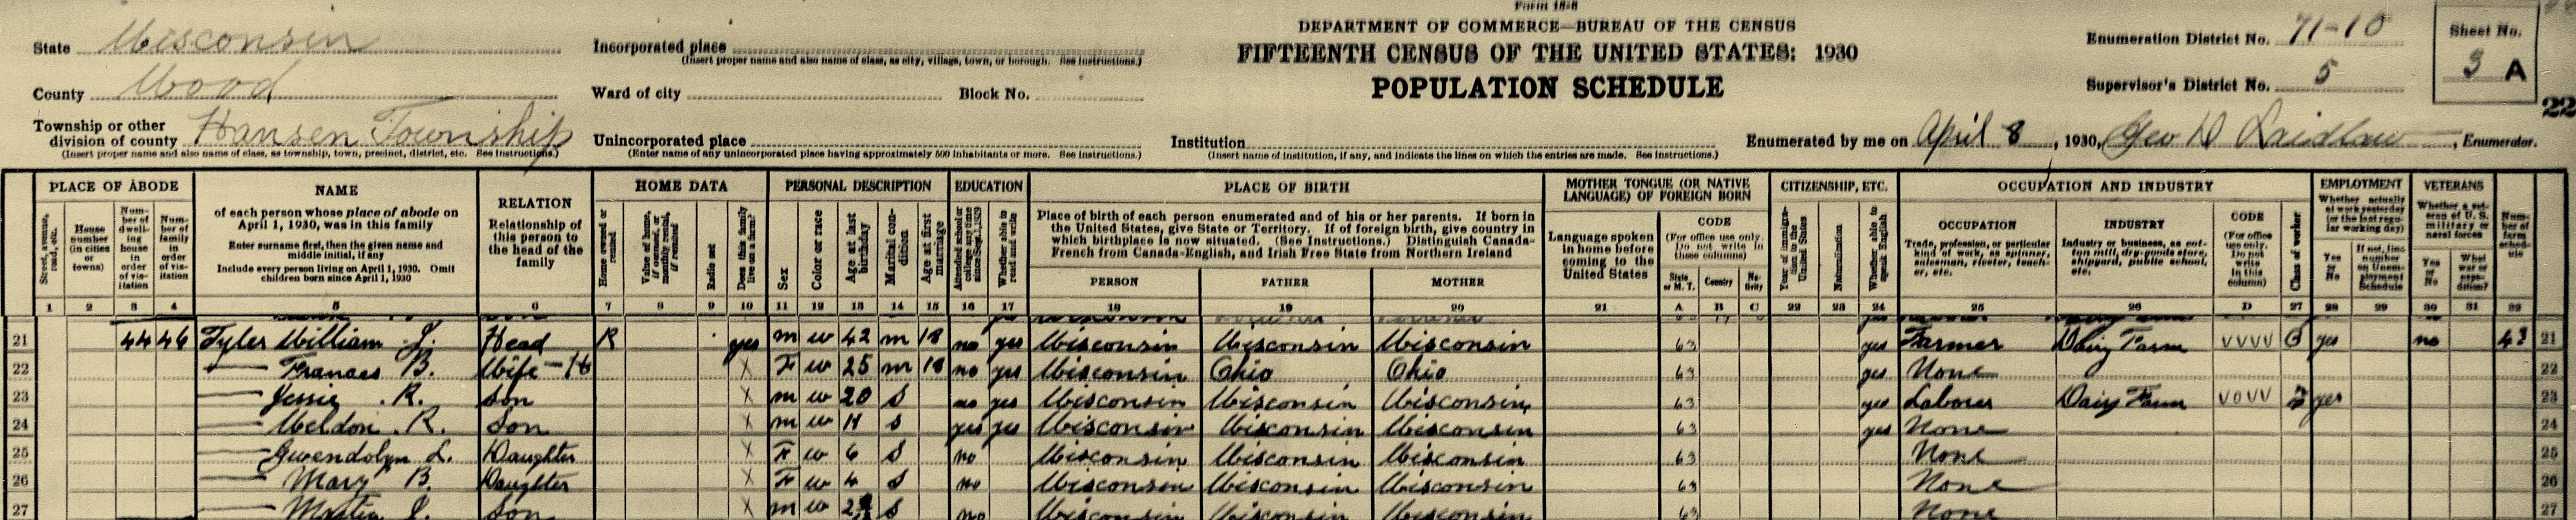 Form 15-8
DEPARTMENT OF COMMERCE—BUREAU OF THE CENSUS
FIFTEENTH CENSUS OF THE UNITED STATES: 1930
POPULATION SCHEDULE
State Wisconsin
County Wood
Township or other division of county Hansen Township
(Insert proper name and also name of class, as township, town, precinct, district, etc. See instructions.)
Incorporated place
(Insert proper name and also name of class, as city, village, town, or borough. See instructions.)
Ward of city Block No.
Unincorporated place
(Enter name of any unincorporated place having approximately 500 inhabitants or more. See instructions.)
Institution
(Insert name of institution, if any, and indicate the lines on which the entries are made. See instructions.)
Enumeration District No. 71-10
Supervisor's District No. 5
Sheet No.
3 A
22
Enumerated by me on April 8, 1930, Geo D Laidlaw, Enumerator.
PLACE OF ABODE
Street, avenue, road, etc.
House number (in cities or towns)
Number of dwelling house in order of visitation
Number of family in order of visitation
NAME
of each person whose place of abode on April 1, 1930, was in this family
Enter surname first, then the given name and middle initial, if any
Include every person living on April 1, 1930. Omit children born since April 1, 1930
RELATION
Relationship of this person to the head of the family
HOME DATA
Home owned or rented
Value of home, if owned, or monthly rental, if rented
Radio set
Does this family live on a farm?
PERSONAL DESCRIPTION
Sex
Color or race
Age at last birthday
Marital condition
Age at first marriage
EDUCATION
Attended school or college any time since Sept. 1, 1929
Whether able to read and write
PLACE OF BIRTH
Place of birth of each person enumerated and of his or her parents. If born in the United States, give State or Territory. If of foreign birth, give country in which birthplace is now situated. (See Instructions.) Distinguish Canada-French from Canada-English, and Irish Free State from Northern Ireland
PERSON
FATHER
MOTHER
MOTHER TONGUE (OR NATIVE LANGUAGE) OF FOREIGN BORN
Language spoken in home before coming to the United States
CODE
(For office use only. Do not write in these columns)
State or M. T.
Country
Nativity
CITIZENSHIP, ETC.
Year of immigration to the United States
Naturalization
Whether able to speak English
OCCUPATION AND INDUSTRY
OCCUPATION
Trade, profession, or particular kind of work, as spinner, salesman, riveter, teacher, etc.
INDUSTRY
Industry or business, as cotton mill, dry-goods store, shipyard, public school, etc.
CODE
(For office use only. Do not write in this column)
Class of worker
EMPLOYMENT
Whether actually at work yesterday (or the last regular working day)
Yes or No
If not, line number on Unemployment Schedule
VETERANS
Whether a veteran of U. S. military or naval forces
Yes or No
What war or expedition?
Number of farm schedule
1 2 3 4 5 6 7 8 9 10 11 12 13 14 15 16 17 18 19 20 21 A B C 22 23 24 25 26 D 27 28 29 30 31 32
21 44 46 Tyler William J. Head R yes m w 42 m 18 no yes Wisconsin Wisconsin Wisconsin 63 yes Farmer Dairy Farm VVVV O yes no 43 21
22 — Frances B. Wife-H X F w 25 m 18 no yes Wisconsin Ohio Ohio 63 yes None 22
23 — Jessie R. Son X m w 20 S no yes Wisconsin Wisconsin Wisconsin 63 yes Laborer Dairy Farm VOVV yes 23
24 — Weldon R. Son X m w 11 S yes yes Wisconsin Wisconsin Wisconsin 63 yes None 24
25 — Gwendolyn L. Daughter X F w 6 S no Wisconsin Wisconsin Wisconsin 63 None 25
26 — Mary B. Daughter X F w 4 S no Wisconsin Wisconsin Wisconsin 63 None 26
27 — J. Son X m w S no Wisconsin Wisconsin Wisconsin 63 None 27